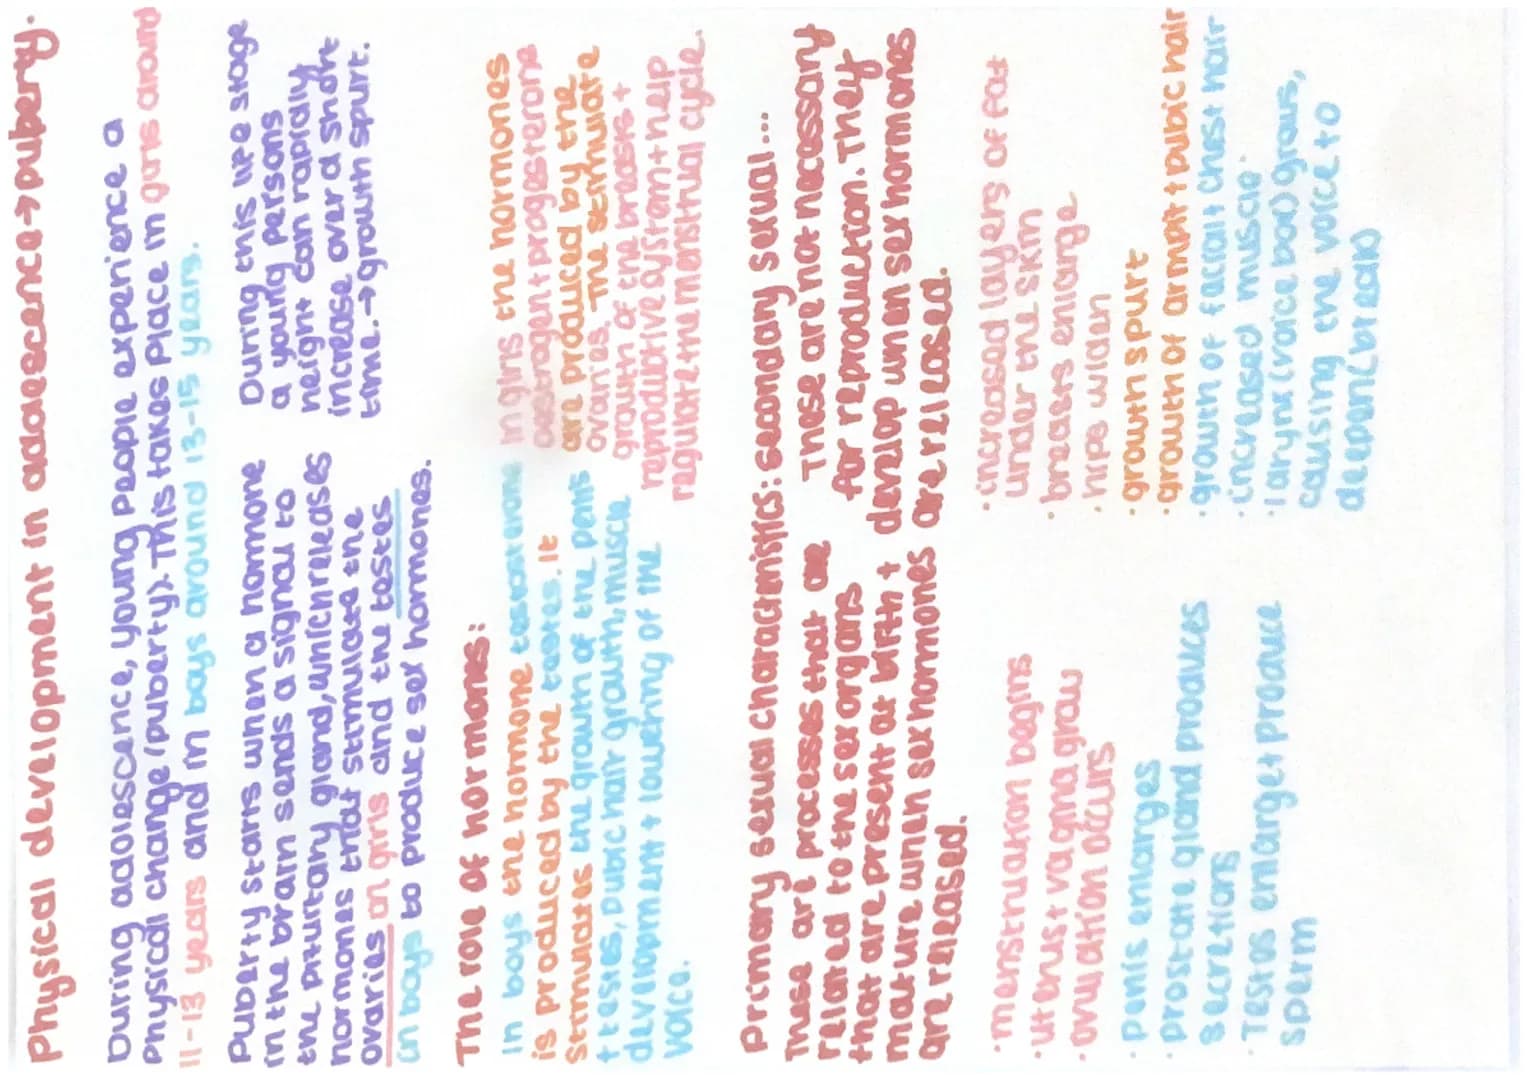 Physical development in adolescence→puberty.
During adolescence, young people experience a
physical change (puberty). This takes place in girls around
11-13 years and in boys around 13-15 years.
Puberty starts when a hormone
in the brain sends a signal to
the pituitary gland, which releases
hormones that stimulate the
ovaries in girls and the testes
in boys to produce sex hormones.
During this life stage
a young persons
height can rapidly
increase over a short
time.→growth spurt.
The role of hormones:
In boys the hormone testosterone
is produced by the testes. It
stimulates the growth of the penis
+ testes, pubic hair growth, muscle
development + lowering of the
voice.
In girls the hormones
oestrogen+progesterone
are produced by the
ovaries. The stimulate
growth of the breasts +
reproductive system+help
regulate the menstrual cycle.
Primary sexual characteristics: secondary sexual...
These are processes that are
related to the sex organs
that are present at birth +
mature when sex hormones
are released.
These are not necessary
for reproduction. They
develop when sex hormones
are released.
·menstruation begins
·uterus+vagina grow
·ovulation occurs
·penis enlarges
·prostate gland produces
secretions
·Testes enlarge+produce
sperm
·increased layers of fat
under the skin
·breasts enlarge
·hips widen
·growth spurt
·growth of armpit+pubic hair
·growth of facial+chest hair
·increased muscle
·larynx (voice box) grows,
causing the voice to
deepen(break)